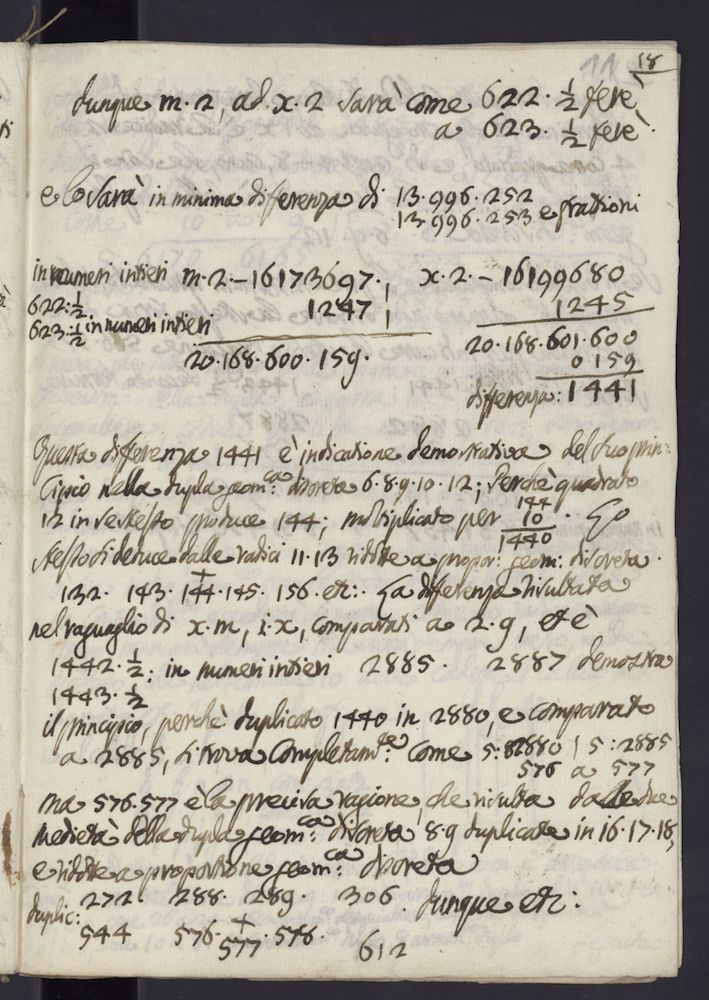 11 18
dunque m. 2, ad x. 2 sarà come 622. 1/2 ferè
a 623. 1/2 ferè.
e lo sarà in minima differenza di 13.996.252
13.996.253 e frattioni
in numeri intieri m. 2. - 16173697. x. 2. - 16199680
622: 1/2
623: 1/2 in numeri intieri 1247 1245
20.168.600.159. 20.168.601.600
0 159
differenza: 1441
Questa differenza 1441 è indicatione demostrativa del suo prin:
cipio nella dupla geom:ca discreta 6.8.9.10.12; Perchè quadrato
12 in se stesso produce 144; moltiplicato per 144
10
1440. Lo
stesso si deduce dalle radici 11.13 ridotte a propor: geom: discreta.
132. 143. 144. 145. 156. etc:. La differenza risultata
nel raguaglio di x.m, i.x, comparati a 2.9, et è
1442. 1/2; in numeri intieri 2885. 2887 demostra
1443. 1/2
il principio, perchè duplicato 1440 in 2880, e comparato
a 2885, si trova completam:te come 5: 2880 | 5: 2885
576 a 577
ma 576.577 è la precisa ragione, che risulta dalle due
medietà della dupla geom:ca discreta 8.9 duplicate in 16.17.18,
e ridotte a proportione geom:ca discreta
272. 288. 289. 306 dunque etc:
duplic:
544 576. 577. 578. 612